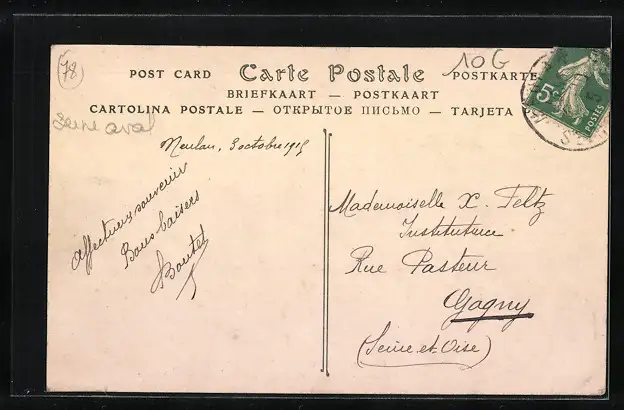 78
10G
POST CARD Carte Postale POSTKARTE
BRIEFKAART — POSTKAART
CARTOLINA POSTALE — ОТКРЫТОЕ ПИСЬМО — TARJETA
Seine aval
5c
POSTES
Meulan, 3 octobre 1915
Affectueux souvenir
Bons baisers
Boutet
Mademoiselle X. Feltz
Institutrice
Rue Pasteur
Gagny
(Seine et Oise)